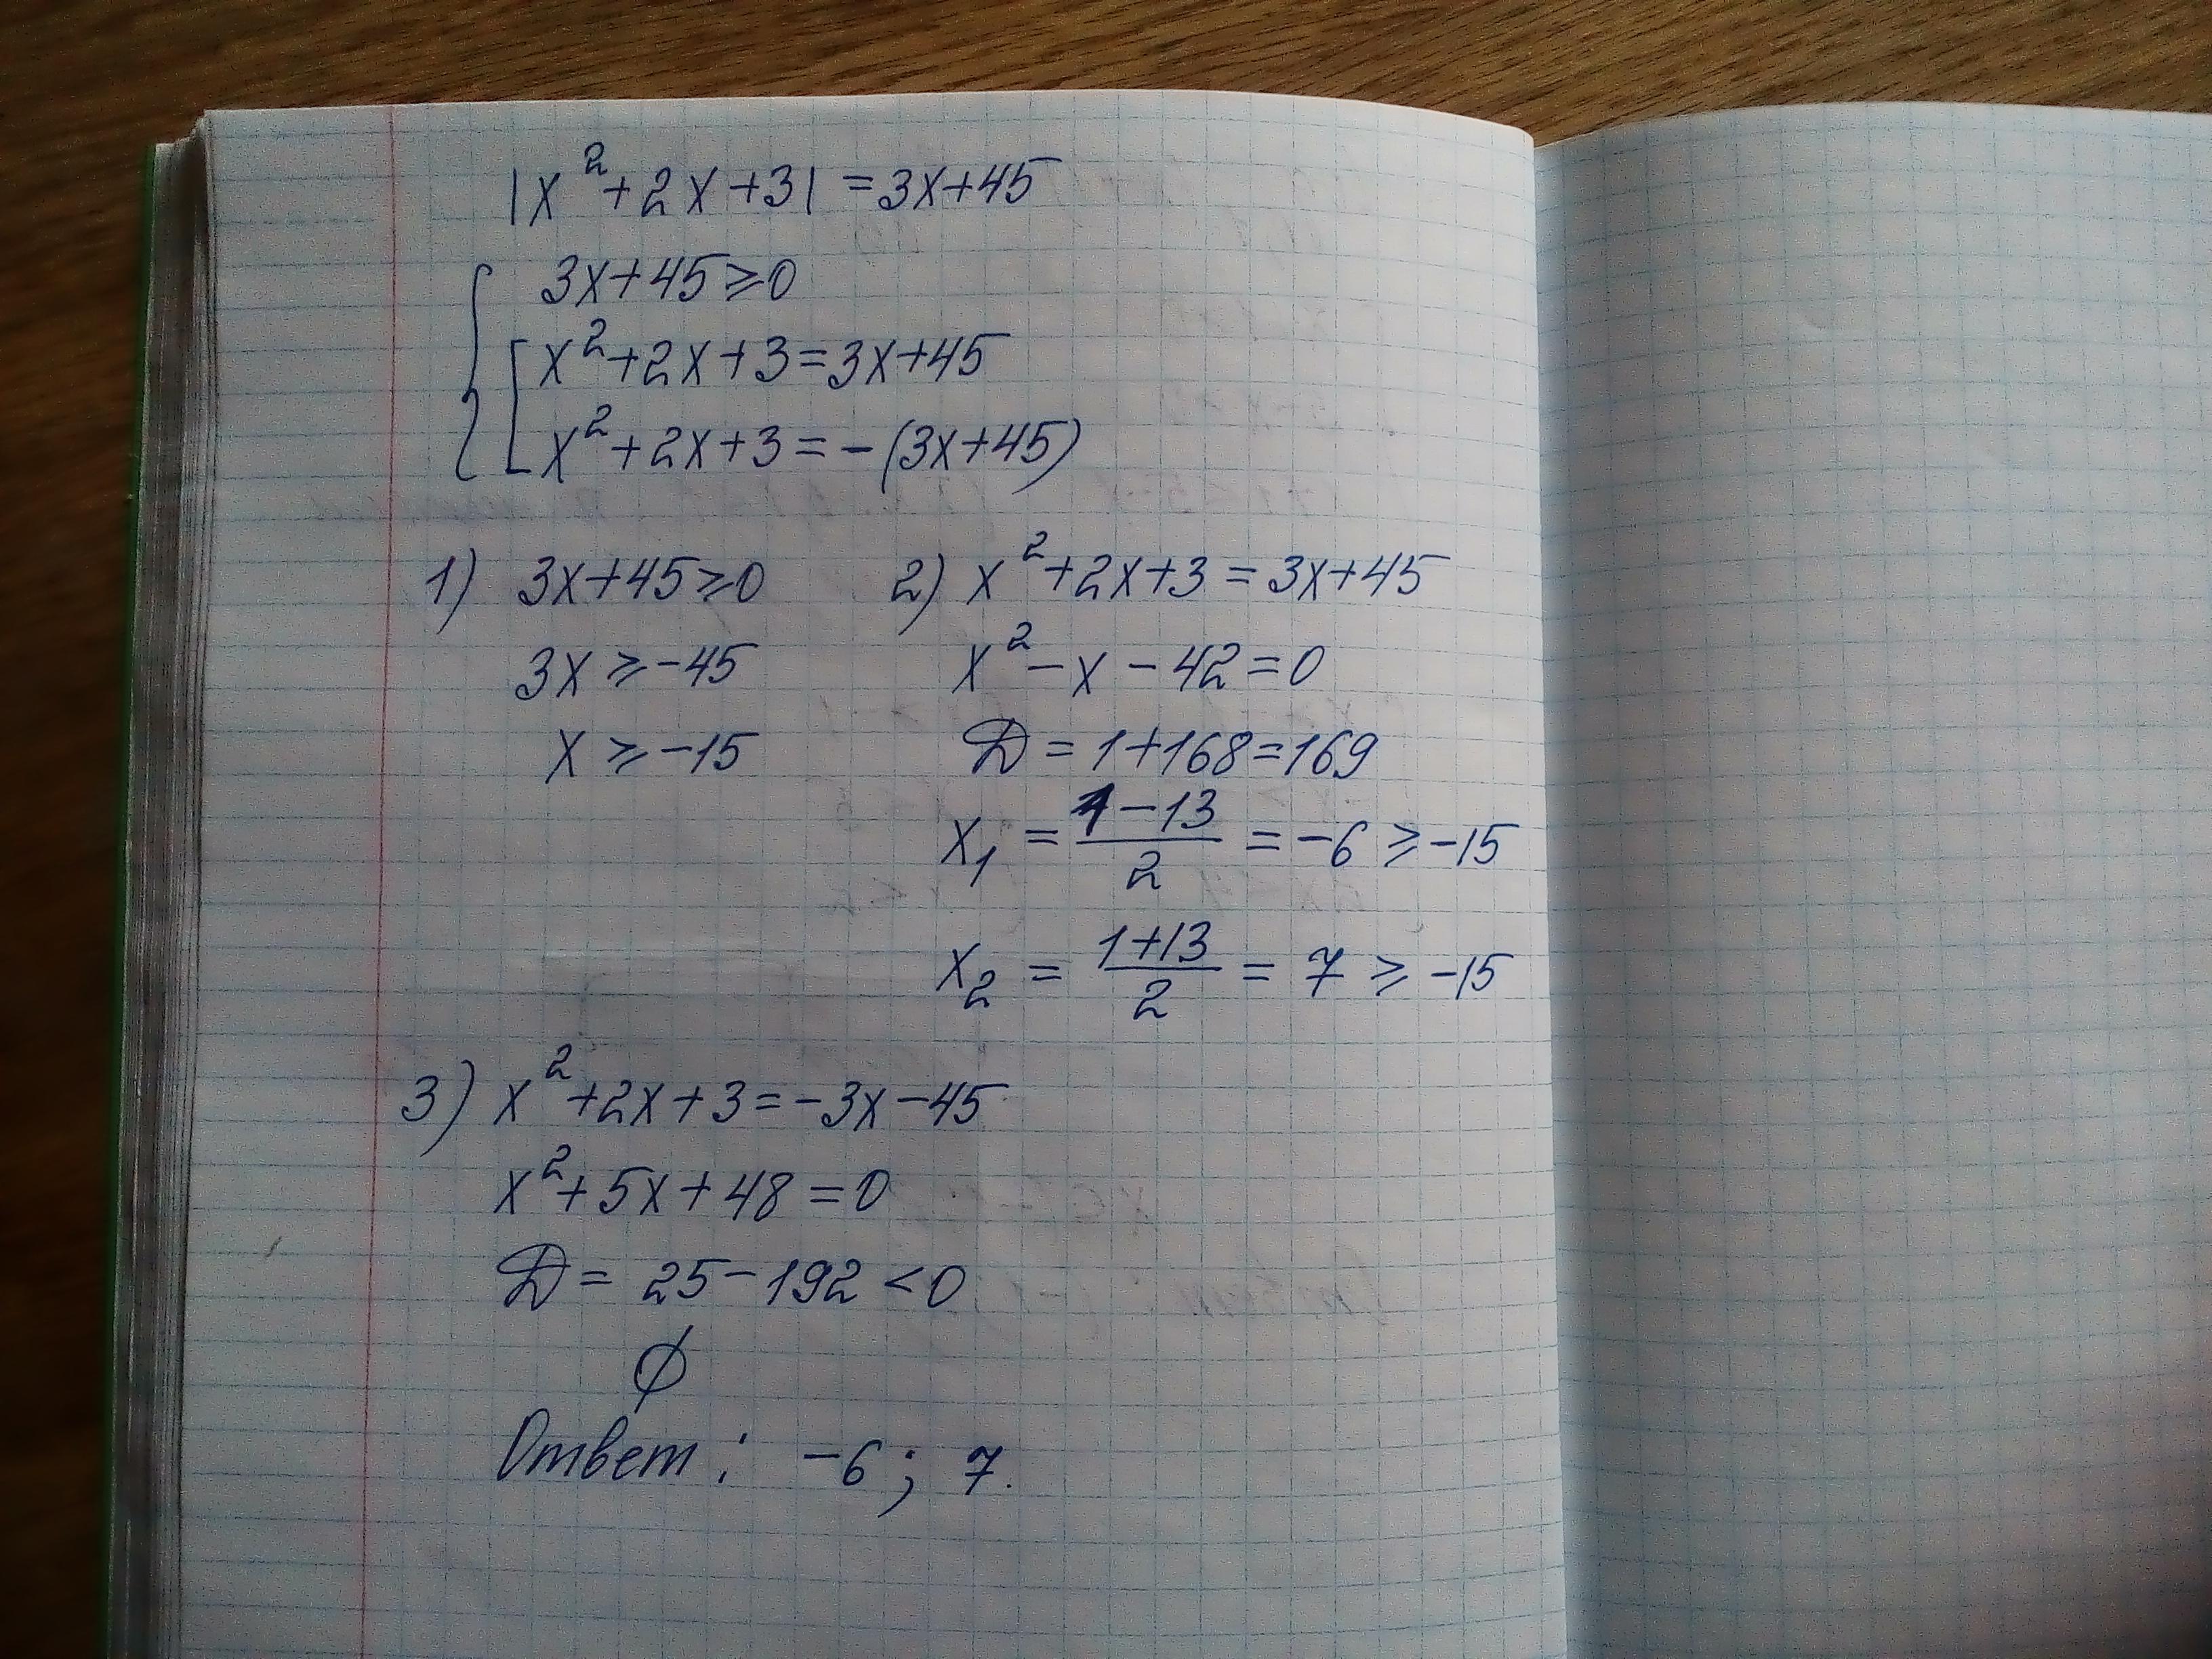 |x²+2x+3|=3x+45
3x+45≥0
x²+2x+3=3x+45
x²+2x+3=-(3x+45)
1) 3x+45≥0
3x≥-45
x≥-15
2) x²+2x+3=3x+45
x²-x-42=0
D=1+168=169
x₁=(1-13)/2=-6≥-15
x₂=(1+13)/2=7≥-15
3) x²+2x+3=-3x-45
x²+5x+48=0
D=25-192<0
∅
Ответ: -6; 7.